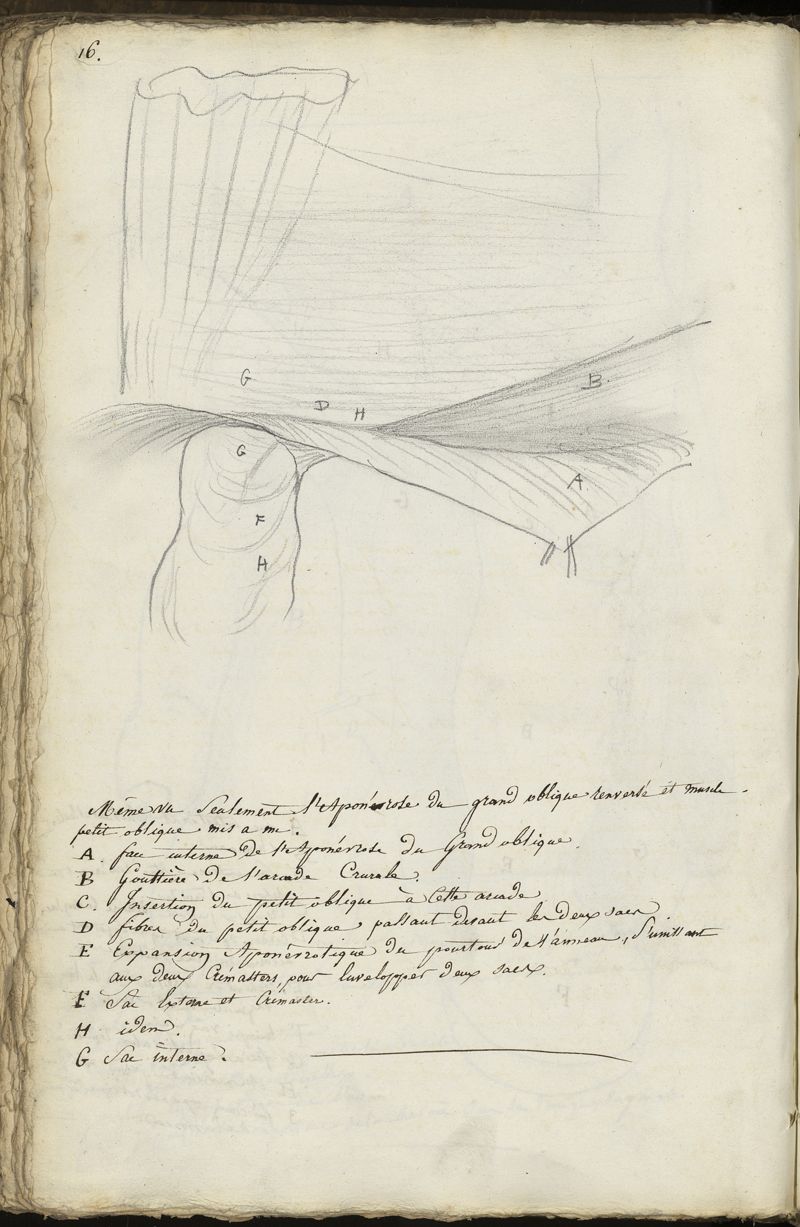 16.
G
D H
B
G
A
F
H
Même vu seulement l'Aponévrose du grand oblique renversé et muscle
petit oblique mis a nu.
A. face interne de l'Aponévrose du Grand oblique.
B Gouttière de l'arcade Crurale.
C. Insertion du petit oblique à cette arcade
D fibres du petit oblique passant devant les deux sacs.
E Expansion Aponévrotique du pourtour de l'anneau, s'unissant
aux deux Crémasters, pour envelopper deux sacs.
F Sac Externe et Crémaster.
H idem.
G Sac interne.